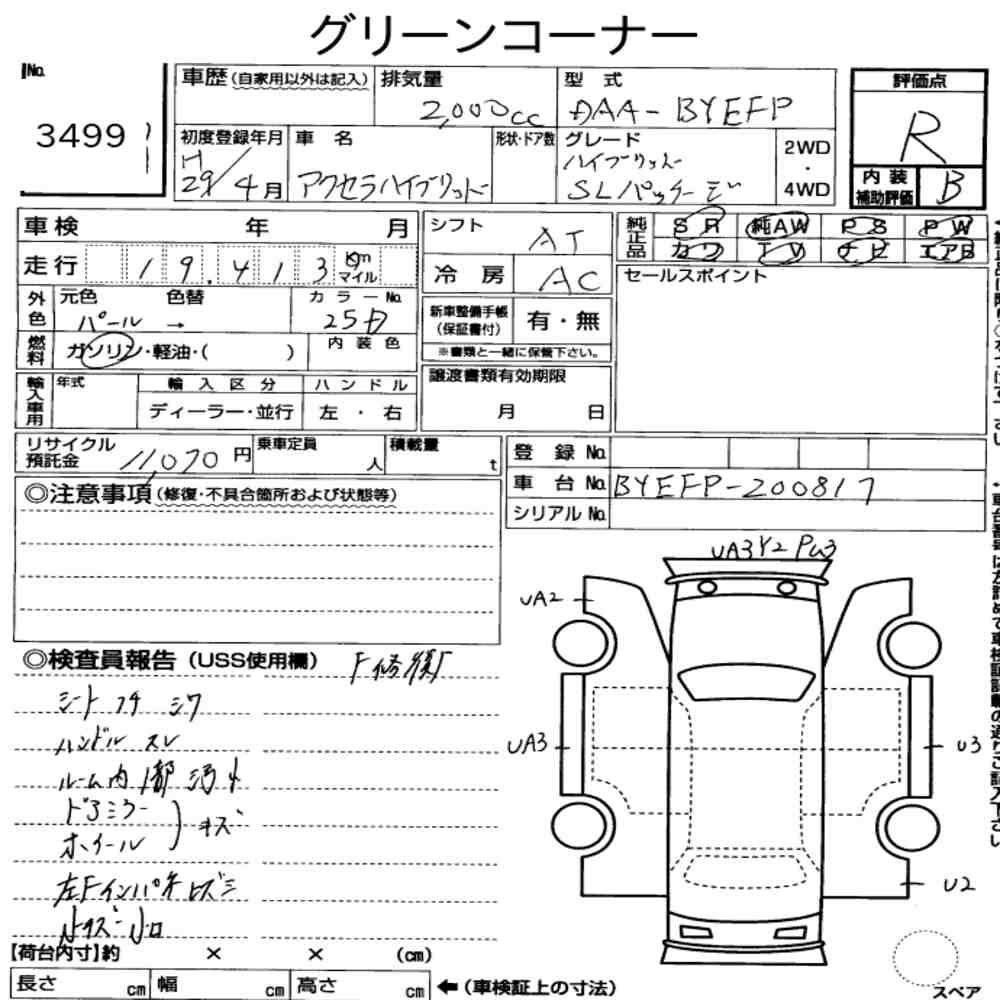 グリーンコーナー
No.
3499
車歴(自家用以外は記入)
排気量
2,000cc
型式
DAA-BYEFP
評価点
R
初度登録年月
H29/4月
車名
アクセラハイブリッド
形状・ドア数
グレード
ハイブリッド
SLパッケージ
2WD
・
4WD
内装
補助評価
B
車検 年 月
シフト
AT
純正品
SR
純AW
PS
PW
カワ
TV
ナビ
エアB
走行
19,413
km
マイル
冷房
AC
セールスポイント
外色
元色
色替
パール →
カラーNo.
25D
新車整備手帳
(保証書付)
有・無
※書類と一緒に保管下さい。
燃料
ガソリン・軽油・( )
内装色
輸入車用
年式
輸入区分
ディーラー・並行
ハンドル
左・右
譲渡書類有効期限
月 日
リサイクル
預託金
11,070円
乗車定員
人
積載量
t
登録No.
車台No.
BYEFP-200817
シリアルNo.
◎注意事項(修復・不具合箇所および状態等)
UA3 Y2 PW3
UA2
UA3
U3
U2
◎検査員報告(USS使用欄)
シート コゲ シワ
ハンドル スレ
ルーム内 1部 汚れ
ドアミラー
ホイール
キズ
左Fインパネ
小キズ 小凹
【荷台内寸】約 × × (cm)
長さ cm
幅 cm
高さ cm
←(車検証上の寸法)
スペア